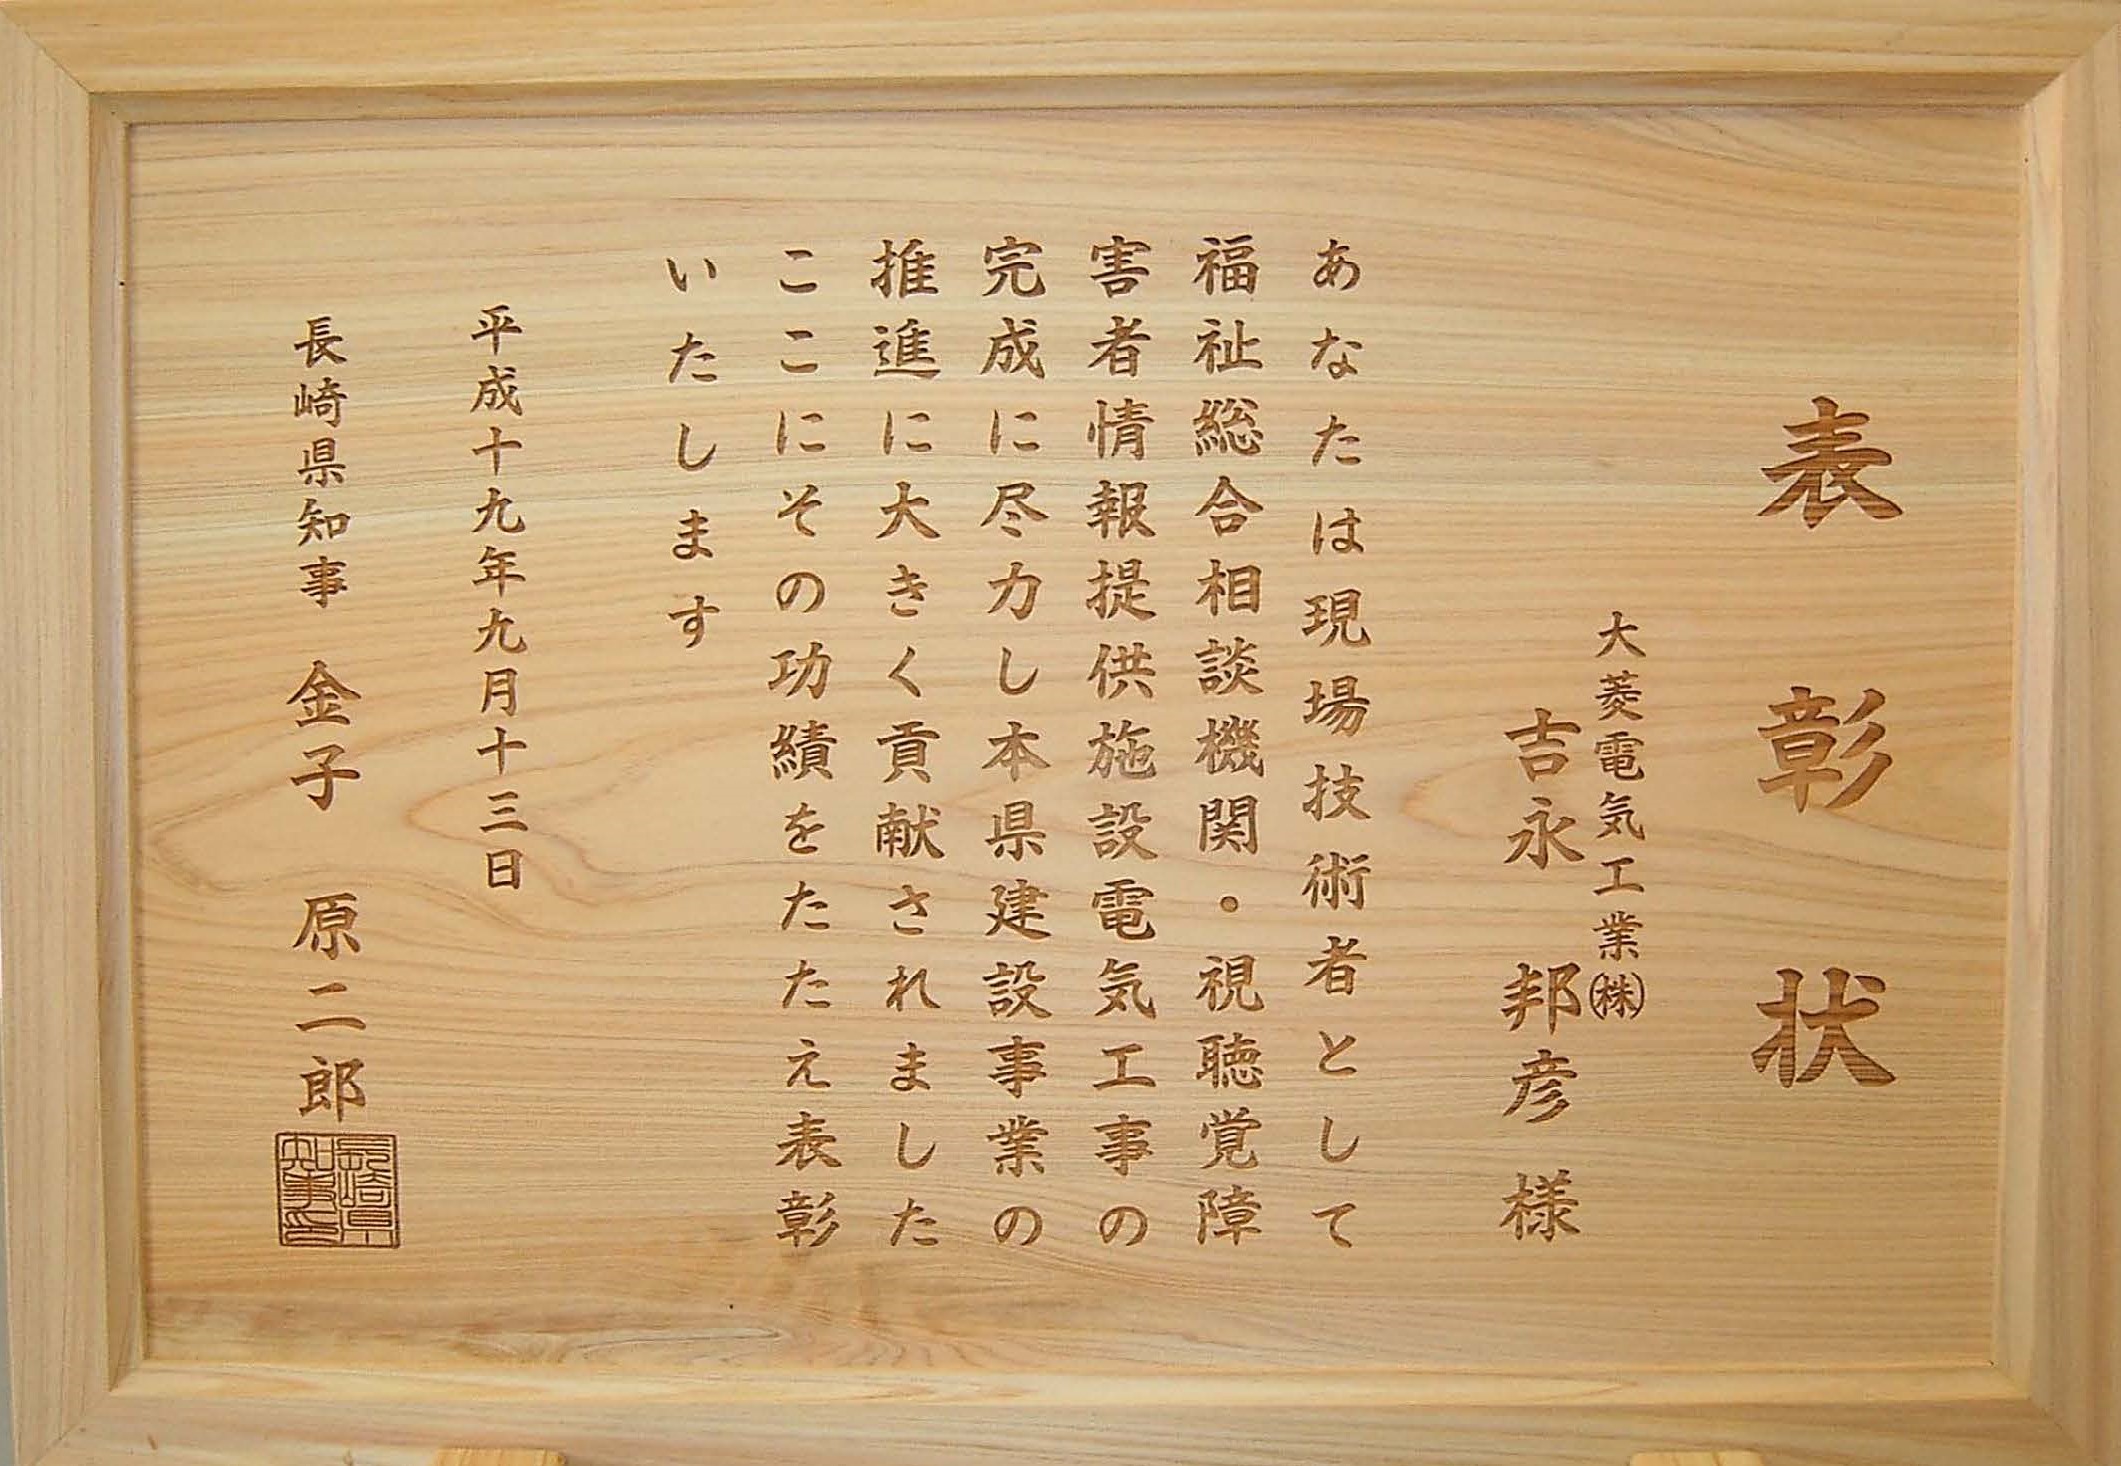 表彰状
大菱電気工業㈱
吉永邦彦様
あなたは現場技術者として
福祉総合相談機関・視聴覚障
害者情報提供施設電気工事の
完成に尽力し本県建設事業の
推進に大きく貢献されました
ここにその功績をたたえ表彰
いたします
平成十九年九月十三日
長崎県知事 金子 原二郎
長崎県
知事印